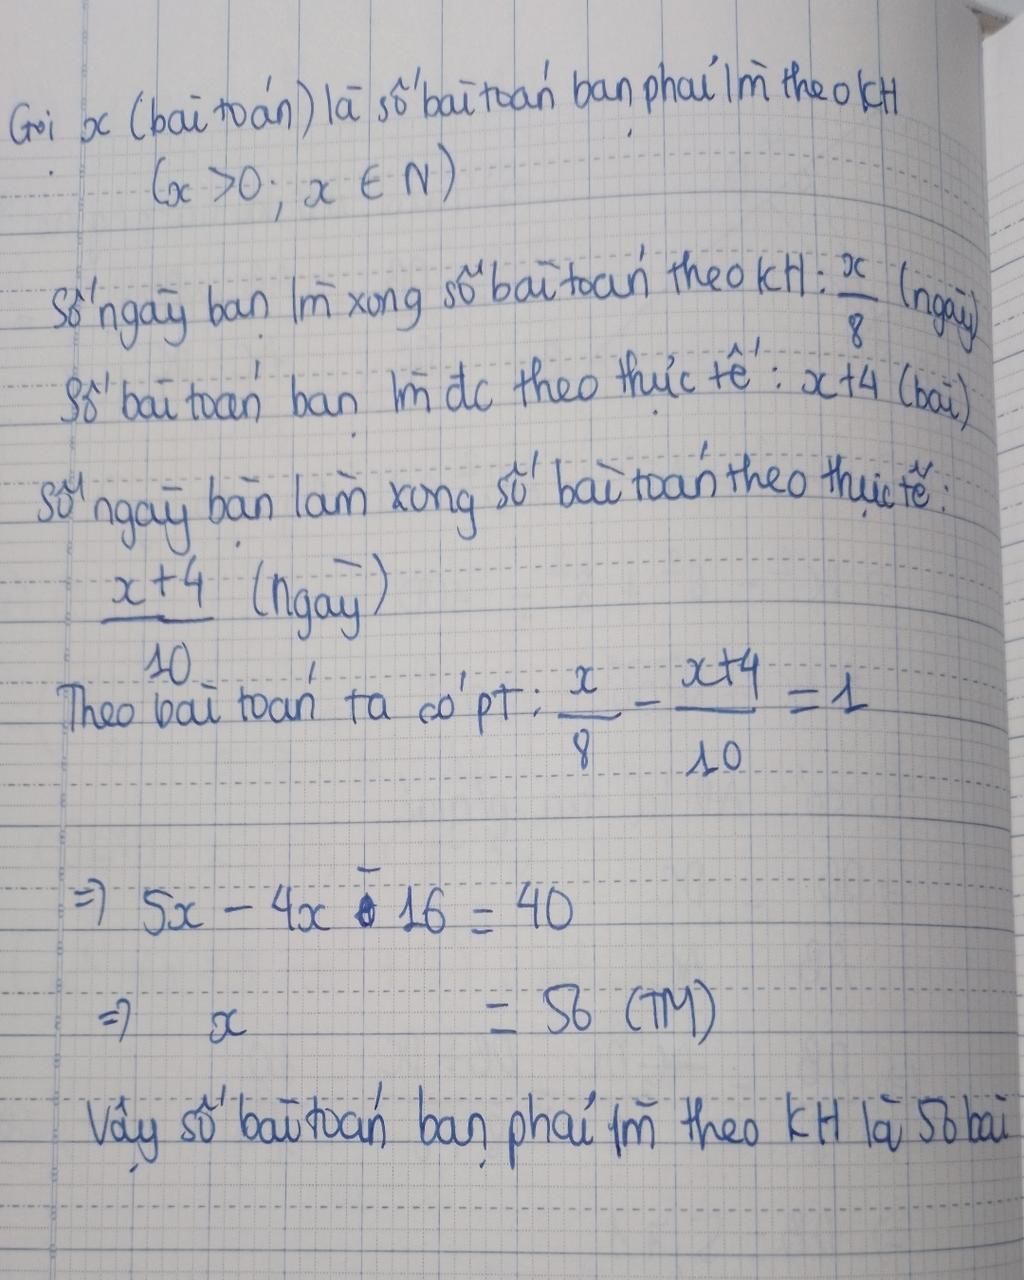 Gọi x (bài toán) là số bài toán bạn phải lm̀ theo KH
(x > 0; x ∈ N)
Số ngày bạn lm̀ xong số bài toán theo KH: x/8 (ngày)
Số bài toán bạn lm̀ đc theo thực tế: x+4 (bài)
Số ngày bạn làm xong số bài toán theo thực tế:
x+4/10 (ngày)
Theo bài toán ta có pt: x/8 - x+4/10 = 1
=> 5x - 4x - 16 = 40
=> x = 56 (TM)
Vậy số bài toán bạn phải lm̀ theo KH là 56 bài